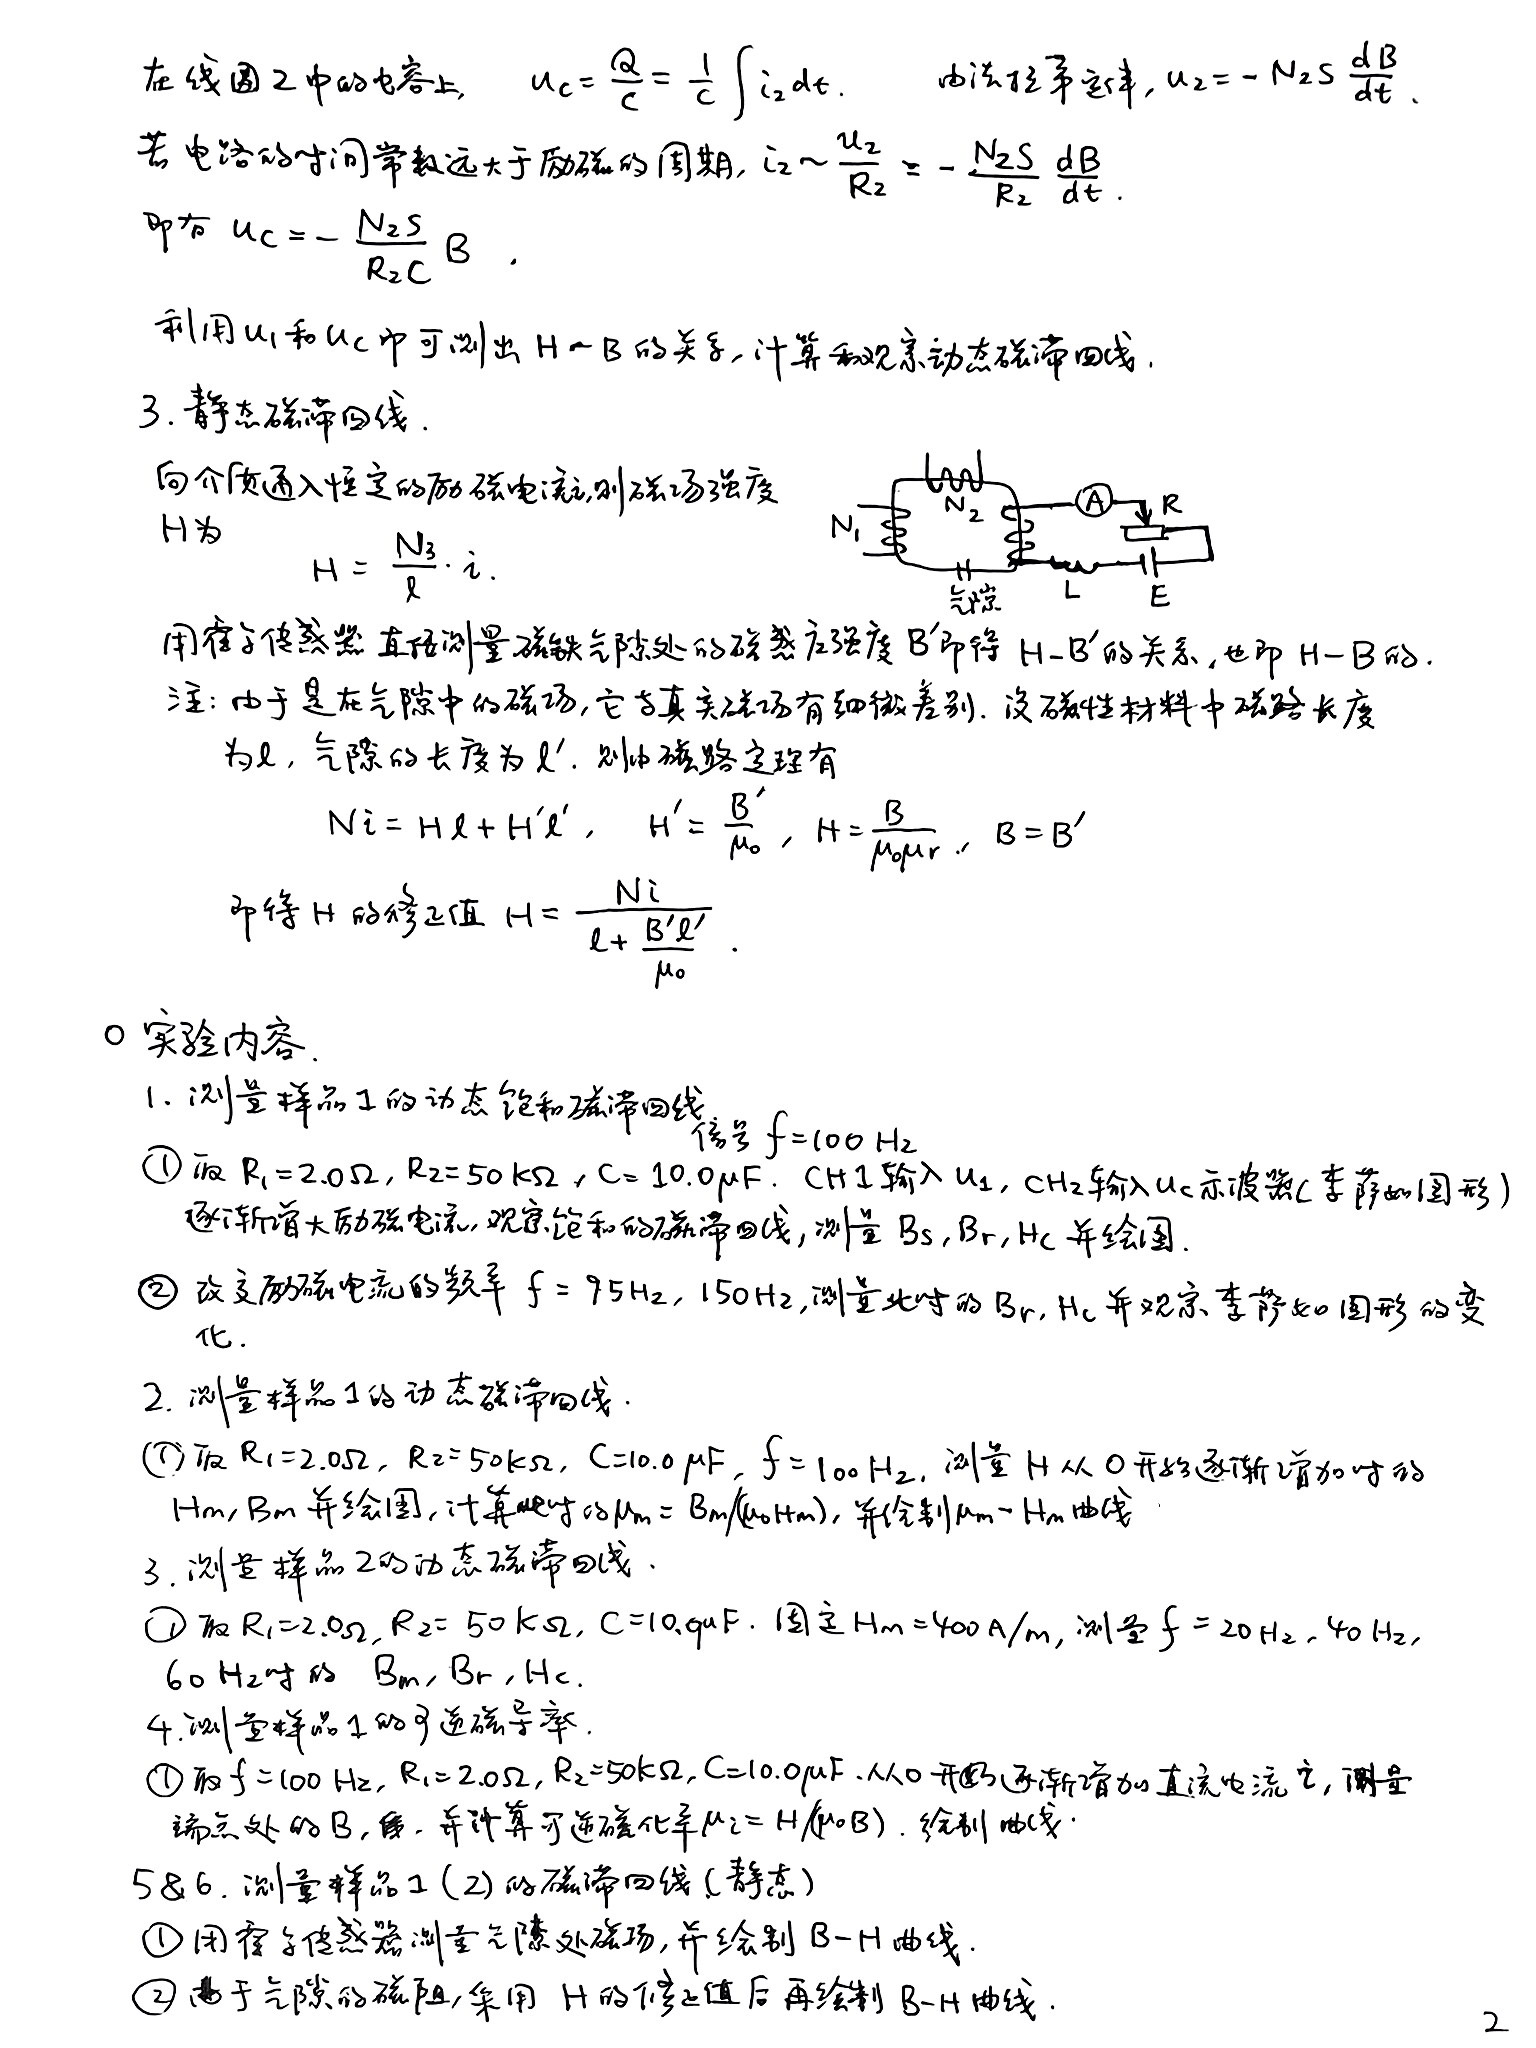 在线圈2中的电容上, u_C = Q/C = 1/C ∫ i₂dt. 由法拉第定律, u₂ = - N₂S dB/dt.
若电路的时间常数远大于励磁的周期, i₂ ~ u₂/R₂ = - N₂S/R₂ dB/dt.
即有 u_C = - N₂S/R₂C B.
利用u₁和u_C即可测出 H~B 的关系, 计算和观察动态磁滞回线.
3. 静态磁滞回线.
向介质通入恒定的励磁电流i, 则磁场强度
H为
H = N₃/l · i.
N₁
N₂
A
R
L
E
气隙
用霍尔传感器直接测量磁铁气隙处的磁感应强度 B′即得 H-B′的关系, 也即 H-B的.
注: 由于是在气隙中的磁场, 它与真实磁场有细微差别. 设磁性材料中磁路长度
为l, 气隙的长度为l′. 则由磁路定理有
Ni = Hl + H′l′, H′ = B′/μ₀, H = B/μ₀μr, B = B′
即得H的修正值 H = Ni/(l + B′l′/μ₀).
○ 实验内容.
1. 测量样品1的动态饱和磁滞回线
信号 f=100 Hz
① 取 R₁=2.0Ω, R₂=50kΩ, C=10.0μF. CH1输入u₁, CH2输入u_C示波器(李萨如图形)
逐渐增大励磁电流, 观察饱和的磁滞回线, 测量 Bs, Br, Hc 并绘图.
② 改变励磁电流的频率 f = 95Hz, 150Hz, 测量此时的 Br, Hc 并观察李萨如图形的变
化.
2. 测量样品1的动态磁滞回线.
① 取 R₁=2.0Ω, R₂=50kΩ, C=10.0μF, f=100Hz, 测量 H 从 0 开始逐渐增加时的
Hm, Bm 并绘图, 计算此时的μm = Bm/(μ₀Hm), 并绘制μm-Hm曲线.
3. 测量样品2的动态磁滞回线.
① 取R₁=2.0Ω, R₂=50kΩ, C=10.0μF. 固定Hm=400A/m, 测量 f=20Hz, 40Hz,
60Hz时的 Bm, Br, Hc.
4. 测量样品1的可逆磁导率.
① 取f=100Hz, R₁=2.0Ω, R₂=50kΩ, C=10.0μF. 从0开始逐渐增加直流电流i, 测量
端点处的B, H. 并计算可逆磁化率μi = H/(μ₀B). 绘制曲线.
5&6. 测量样品1(2)的磁滞回线(静态)
① 用霍尔传感器测量气隙处磁场, 并绘制 B-H 曲线.
② 由于气隙的磁阻, 采用 H 的修正值后再绘制 B-H 曲线.
2